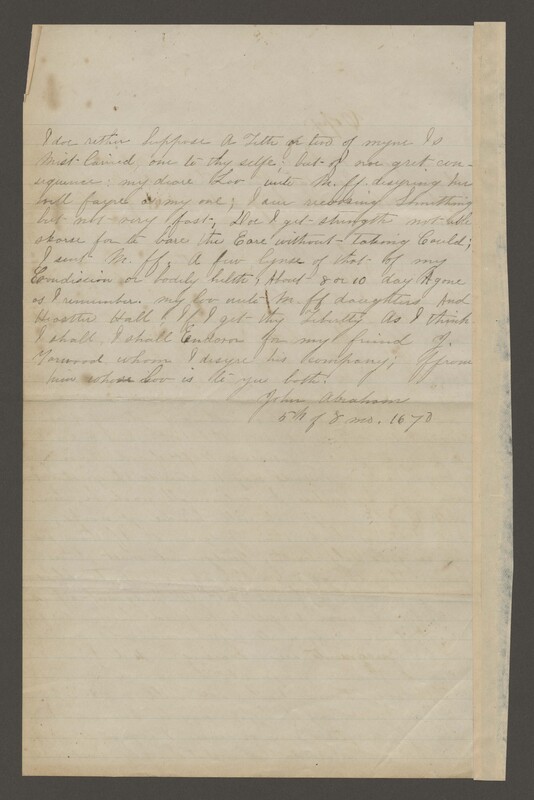 I doe rether Suppose A Letter or two of myne Is
Mist Caried, one to thy selfe; but of noe gret con-
sequence; my deare Lov unto M. ff. desyring her
well fayre as my one; I am recovring Something
but not very fast, Doe I get strength not able
skorse for to bare the Eare without taking Could;
I sent M. ff. A few lynse of that of my
Condiscion or bodily helth; About 8 or 10 day Agone
as I remember. my lov unto M. ff daughters And
Hall. If I get thy Liberty As I think
I shall, I shall Endevor for my frind J.
whom I desyre his Company; ffrom
him whose Lov is to you both.
John Abraham
5th of 8 mo. 1673